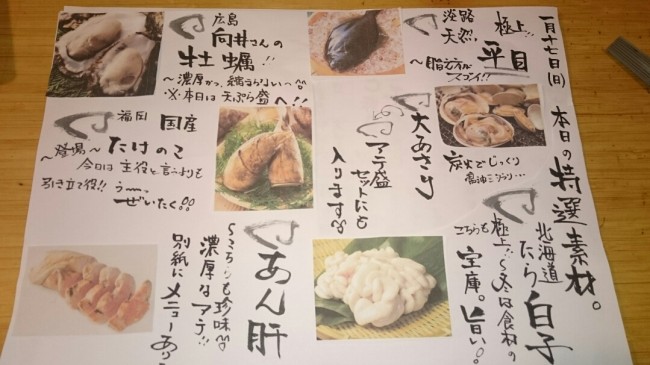 一月十七日(日)
本日の特選素材。
淡路
天然、
極上!!
平目
〜脂ノ方が
スゴイ!!
広島
向井さんの
牡蠣!!
〜濃厚かつ、
※本日は天ぷら盛
へ!!
大あさり
炭火でじっくり
醤油
アテ盛
セットにも
入ります
福岡
国産
たけのこ
〜登場〜
今日は主役と言うよりも
引き立て役!!
ぜいたく
北海道
たら白子
極上!!〜冬は食材の
宝庫。旨い!
こちらも
あん肝
〜こちらも珍味
濃厚なアテ!!
別紙にメニューあり